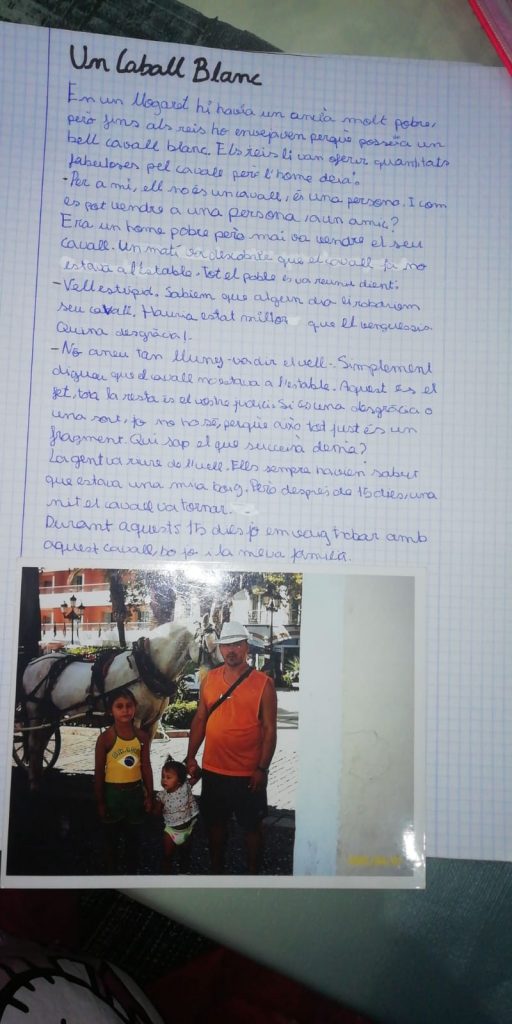 Un Caball Blanc
En un llogaret hi havia un ancià molt pobre,
però fins als reis ho envejaven perquè posseïa un
bell cavall blanc. Els reis li van oferir quantitats
fabuloses pel cavall però l'home deia:
- Per a mi, ell no és un cavall, és una persona. I com
es pot vendre a una persona, a un amic?
Era un home pobre però mai va vendre el seu
cavall. Un matí va descobrir que el cavall ja no
estava a l'estable. Tot el poble es va reunir dient:
- Vell estúpid. Sabiem que algun dia li robariem
seu cavall. Hauria estat millor que el venguessis.
Quina desgràcia!.
- No aneu tan lluny - va dir el vell -. Simplement
digueu que el cavall no estava a l'estable. Aquest és el
fet, tota la resta és el vostre judici. Si és una desgràcia o
una sort, jo no ho sé, perquè això tot just és un
fragment. Qui sap el que succeirà demà?
La gent va riure de l'vell. Ells sempre havien sabut
que estava una mica boig. Però després de 15 dies, una
nit el cavall va tornar.
Durant aquests 15 dies jo em vaig trobar amb
aquest cavall, jo i la meva família.